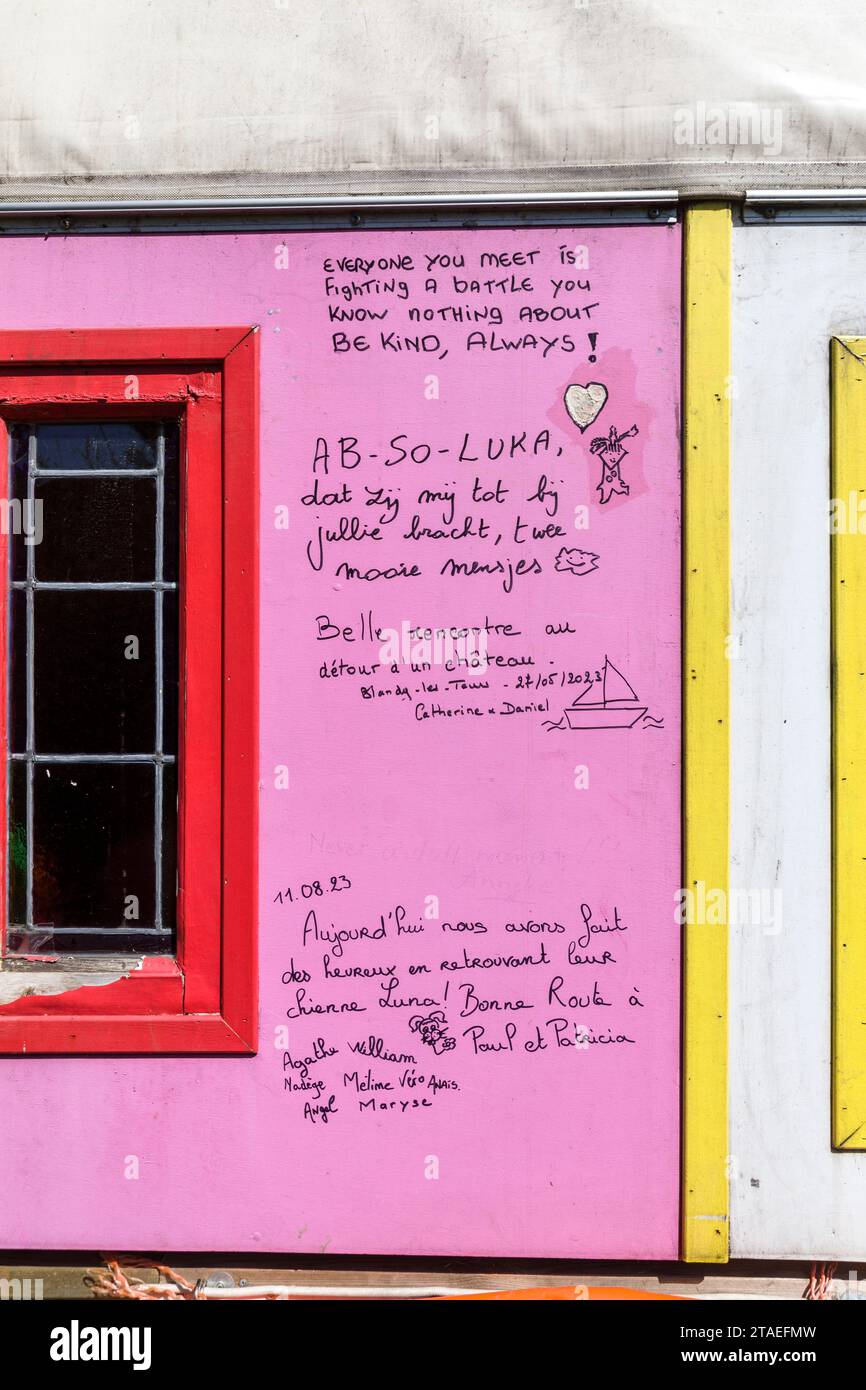 EVERYONE YOU MEET iS
FighTiNG A bATTLE YOU
KNOW NOTHING ABOUT
BE KiND, ALWAYS!
AB-SO-LUKA,
dat zij mij tot bij
jullie bracht, twee
mooie mensjes
Belle rencontre au
détour d'un château.
Blandy-les-Tours - 27/05/2023
Catherine & Daniel
Never a dull moment !!!
11.08.23
Aujourd'hui nous avons fait
des heureux en retrouvant leur
chienne Luna! Bonne Route à
Paul et Patricia
Agathe William
Nadège Méline Véro ANAIS.
Angel Maryse
alamy
Image ID: 2TAEFMW
www.alamy.com